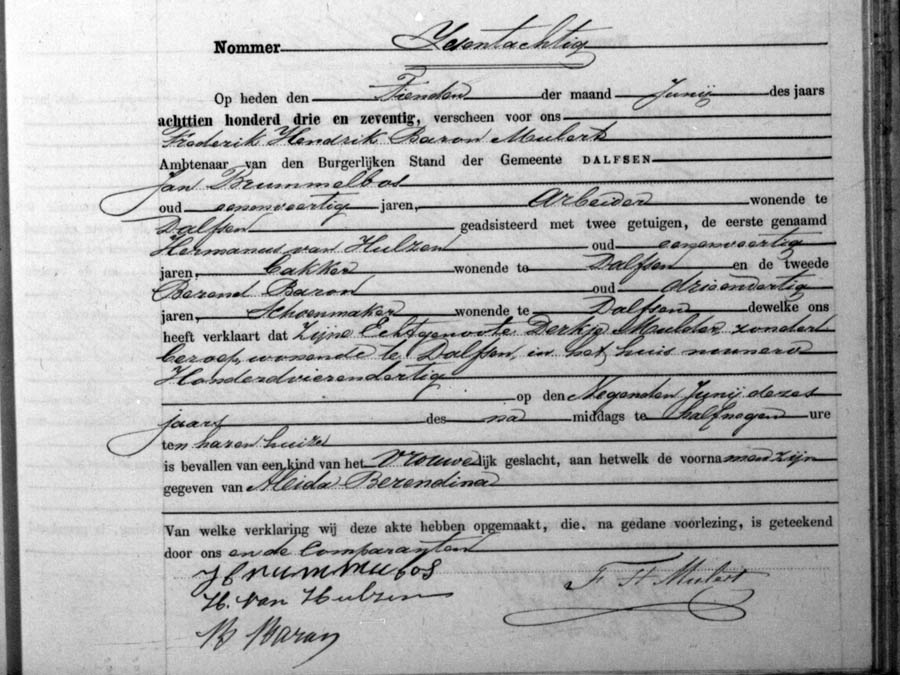 Nommer Zesentachtig
Op heden den Tienden der maand Junij des jaars
achttien honderd drie en zeventig, verscheen voor ons
Frederik Hendrik Baron Mulert
Ambtenaar van den Burgerlijken Stand der Gemeente DALFSEN
Jan Brummelbos
oud eenenveertig jaren, Arbeider wonende te
Dalfsen geadsisteerd met twee getuigen, de eerste genaamd
Hermanus van Hulzen oud eenenveertig
jaren, bakker wonende te Dalfsen en de tweede
Berend Baron oud drieendertig
jaren, Schoenmaker wonende te Dalfsen dewelke ons
heeft verklaart dat Zijne Echtgenoote Derkje Mulder zonder
beroep, wonende te Dalfsen, in het huis nummero
Honderdvierendertig
op den Negenden Junij dezes
jaars des na middags te halfnegen ure
ten haren huize
is bevallen van een kind van het vrouwelijk geslacht, aan hetwelk de voornamen zijn
gegeven van Aleida Berendina
Van welke verklaring wij deze akte hebben opgemaakt, die, na gedane voorlezing, is geteekend
door ons en de Comparanten
J Brummelbos
F. H. Mulert
H. van Hulzen
B Baron